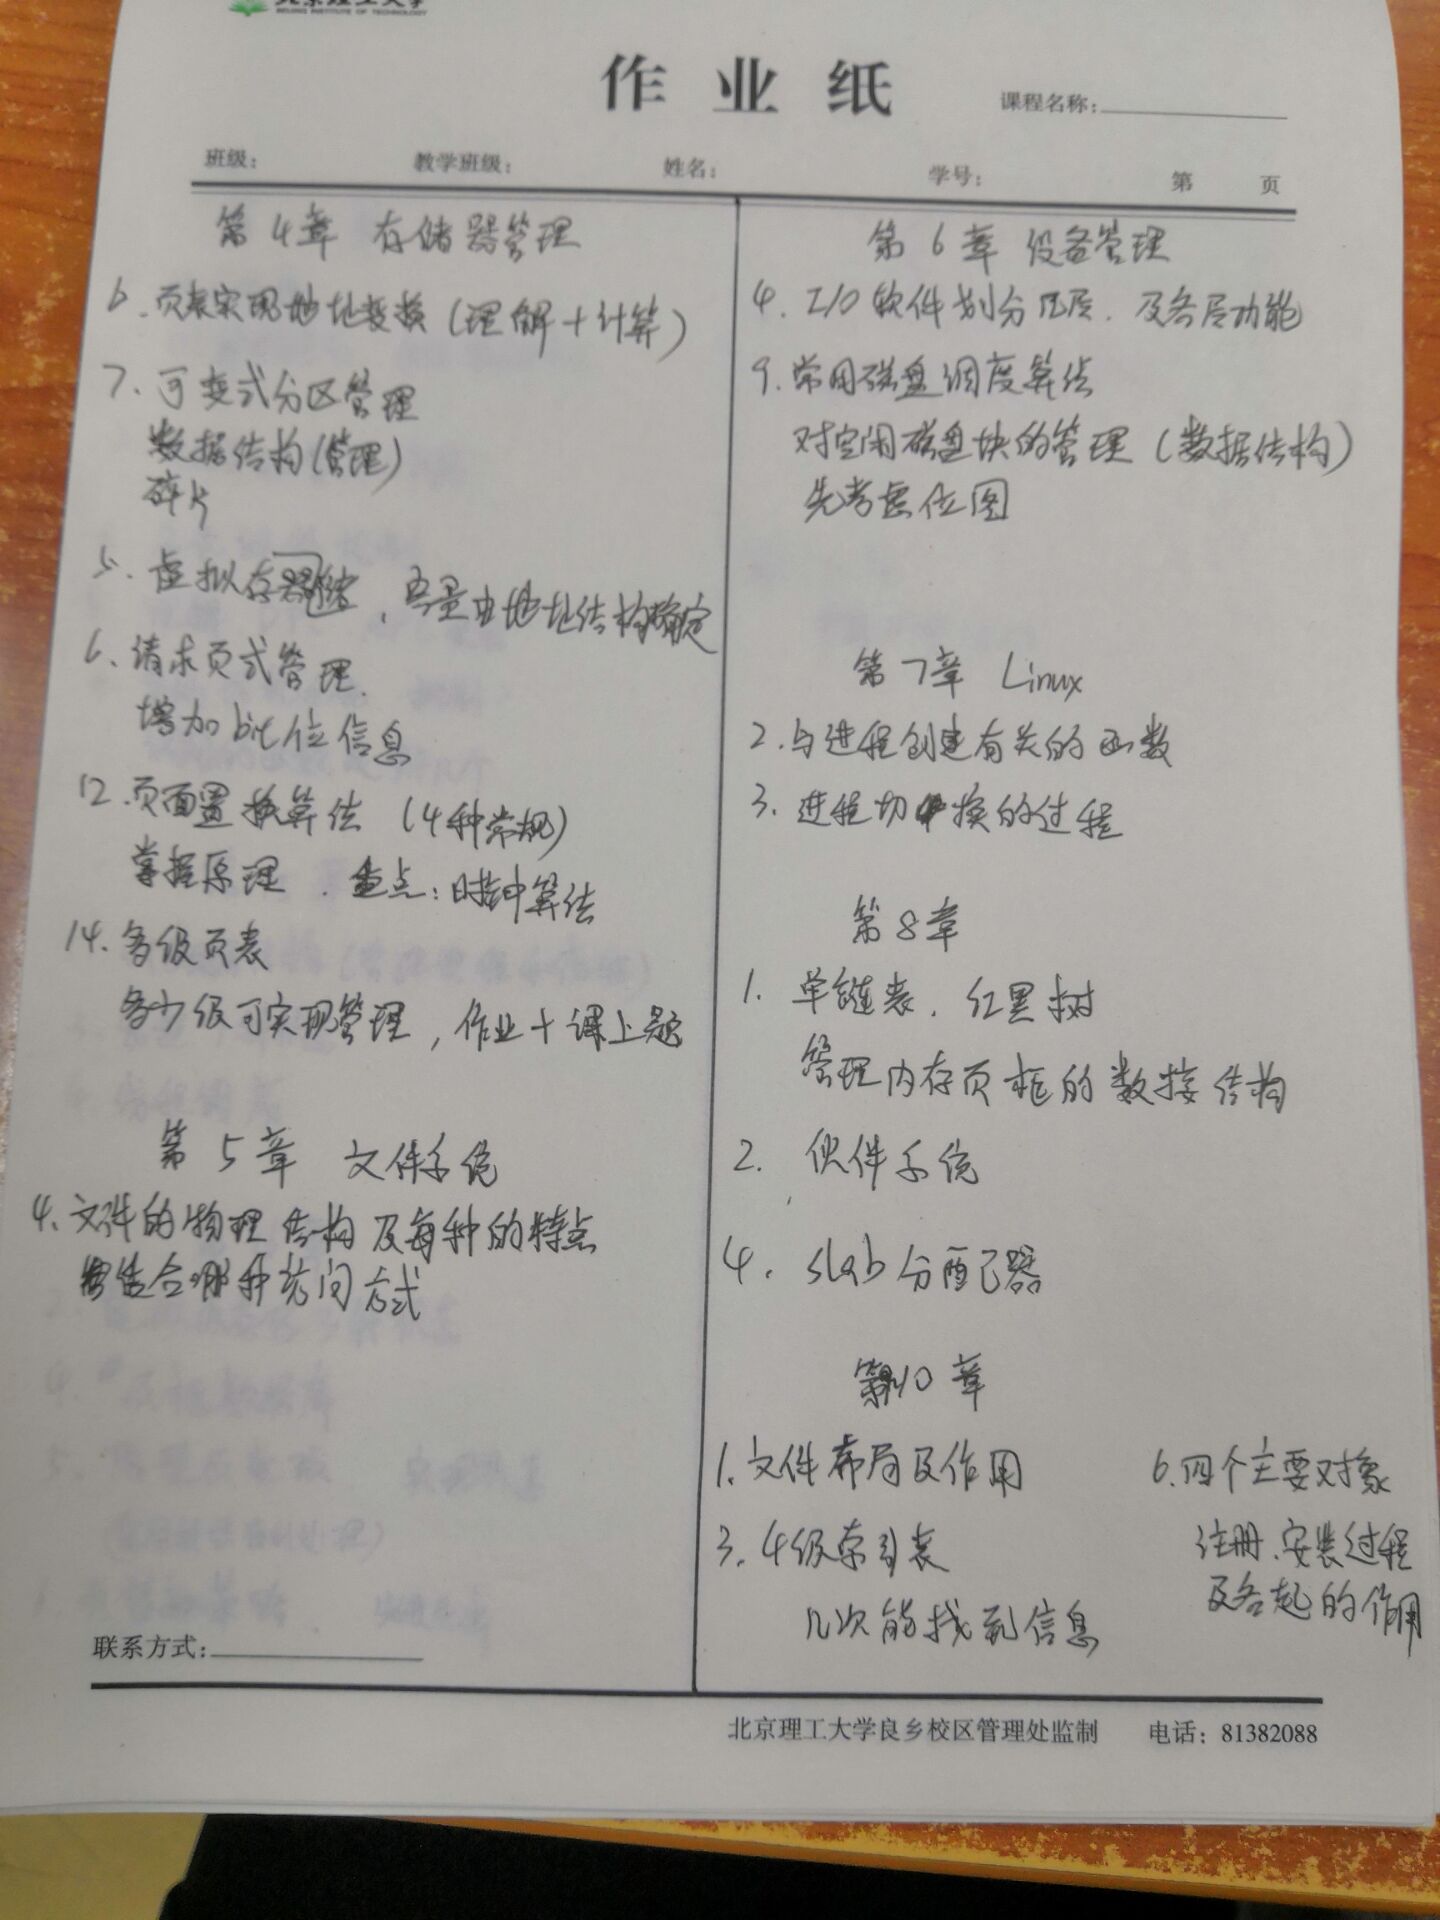 北京理工大学
BEIJING INSTITUTE OF TECHNOLOGY
作业纸
课程名称:
班级: 教学班级: 姓名: 学号: 第 页
第4章 存储器管理
6. 页表实现地址变换（理解+计算）
7. 可变式分区管理
数据结构(管理)
碎片
5. 虚拟存储器, 容量由地址结构确定
6. 请求页式管理.
增加bit位信息
12. 页面置换算法 (4种常规)
掌握原理. 重点: 时钟算法
14. 多级页表
多少级可实现管理, 作业+课上题
第5章 文件系统
4. 文件的物理结构及每种的特点
适合哪种访问方式
联系方式:
第6章 设备管理
4. I/O软件划分几层. 及各层功能
9. 常用磁盘调度算法
对空闲磁盘块的管理（数据结构）
先考虑位图
第7章 Linux
2. 与进程创建有关的函数
3. 进程切换的过程
第8章
1. 单链表. 红黑树
管理内存页框的数据结构
2. 伙伴系统
4. slab分配器
第10章
1. 文件布局及作用
3. 4级索引表
几次能找到信息
6. 四个主要对象
注册.安装过程
及各起的作用
北京理工大学良乡校区管理处监制 电话: 81382088